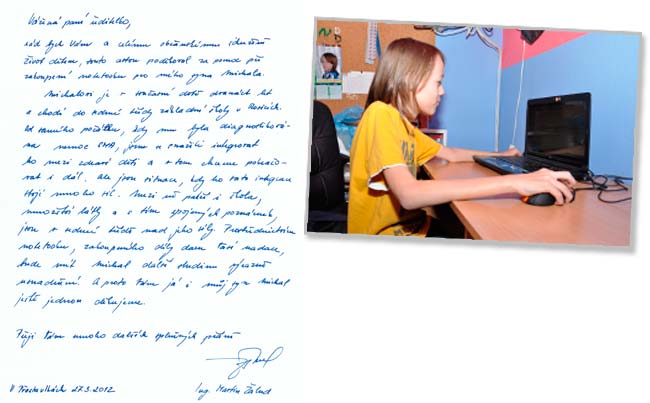 Vážená paní ředitelko,
rád bych Vám a celému občanskému sdružení
život dětem, touto cestou poděkoval za pomoc při
zakoupení notebooku pro mého syna Michala.
Michalovi je v současné době dvanáct let
a chodí do sedmé třídy základní školy v Rosicích.
Od samého počátku, kdy mu byla diagnostiková-
na nemoc SMA, jsme se snažili integrovat
ho mezi zdravé děti a v tom chceme pokračo-
vat i dál. Ale jsou situace, kdy ho tato integrace
stojí mnoho sil. Mezi ně patří i škola,
množství látky a s tím spojených poznámek,
jsou v sedmé třídě nad jeho síly. Prostřednictvím
notebooku, zakoupeného díky daru Vaší nadace,
bude mít Michal další studium výrazně
usnadnění. A proto Vám já i můj syn Michal
ještě jednou děkujeme.
Přeji Vám mnoho dalších splněných přání
V 27.3.2012
Ing. Martin